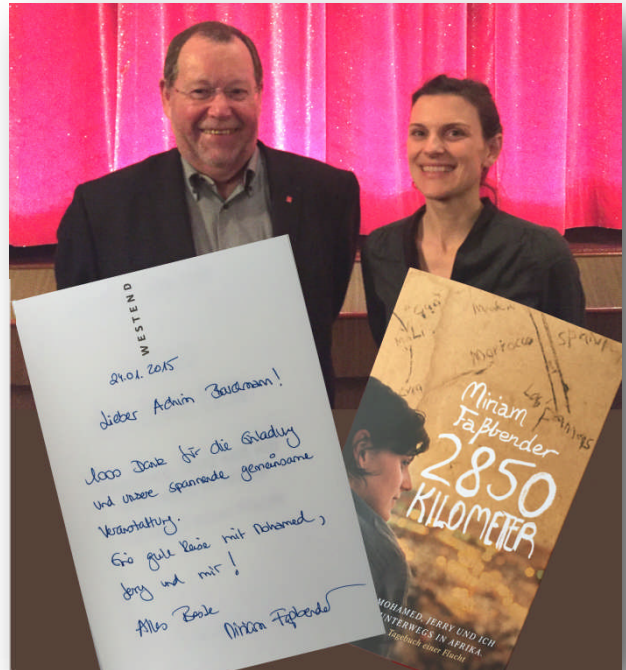 WESTEND
24.01.2015
Lieber Achim Barckmann!
1000 Dank für die Einladung
und unsere spannende gemeinsame
Veranstaltung.
Eine gute Reise mit Mohamed,
Jerry und mir!
Alles Beste
Miriam Faßbender
Morocco
Miriam
Faßbender
2850
KILOMETER
MOHAMED, JERRY UND ICH
UNTERWEGS IN AFRIKA.
Tagebuch einer Flucht